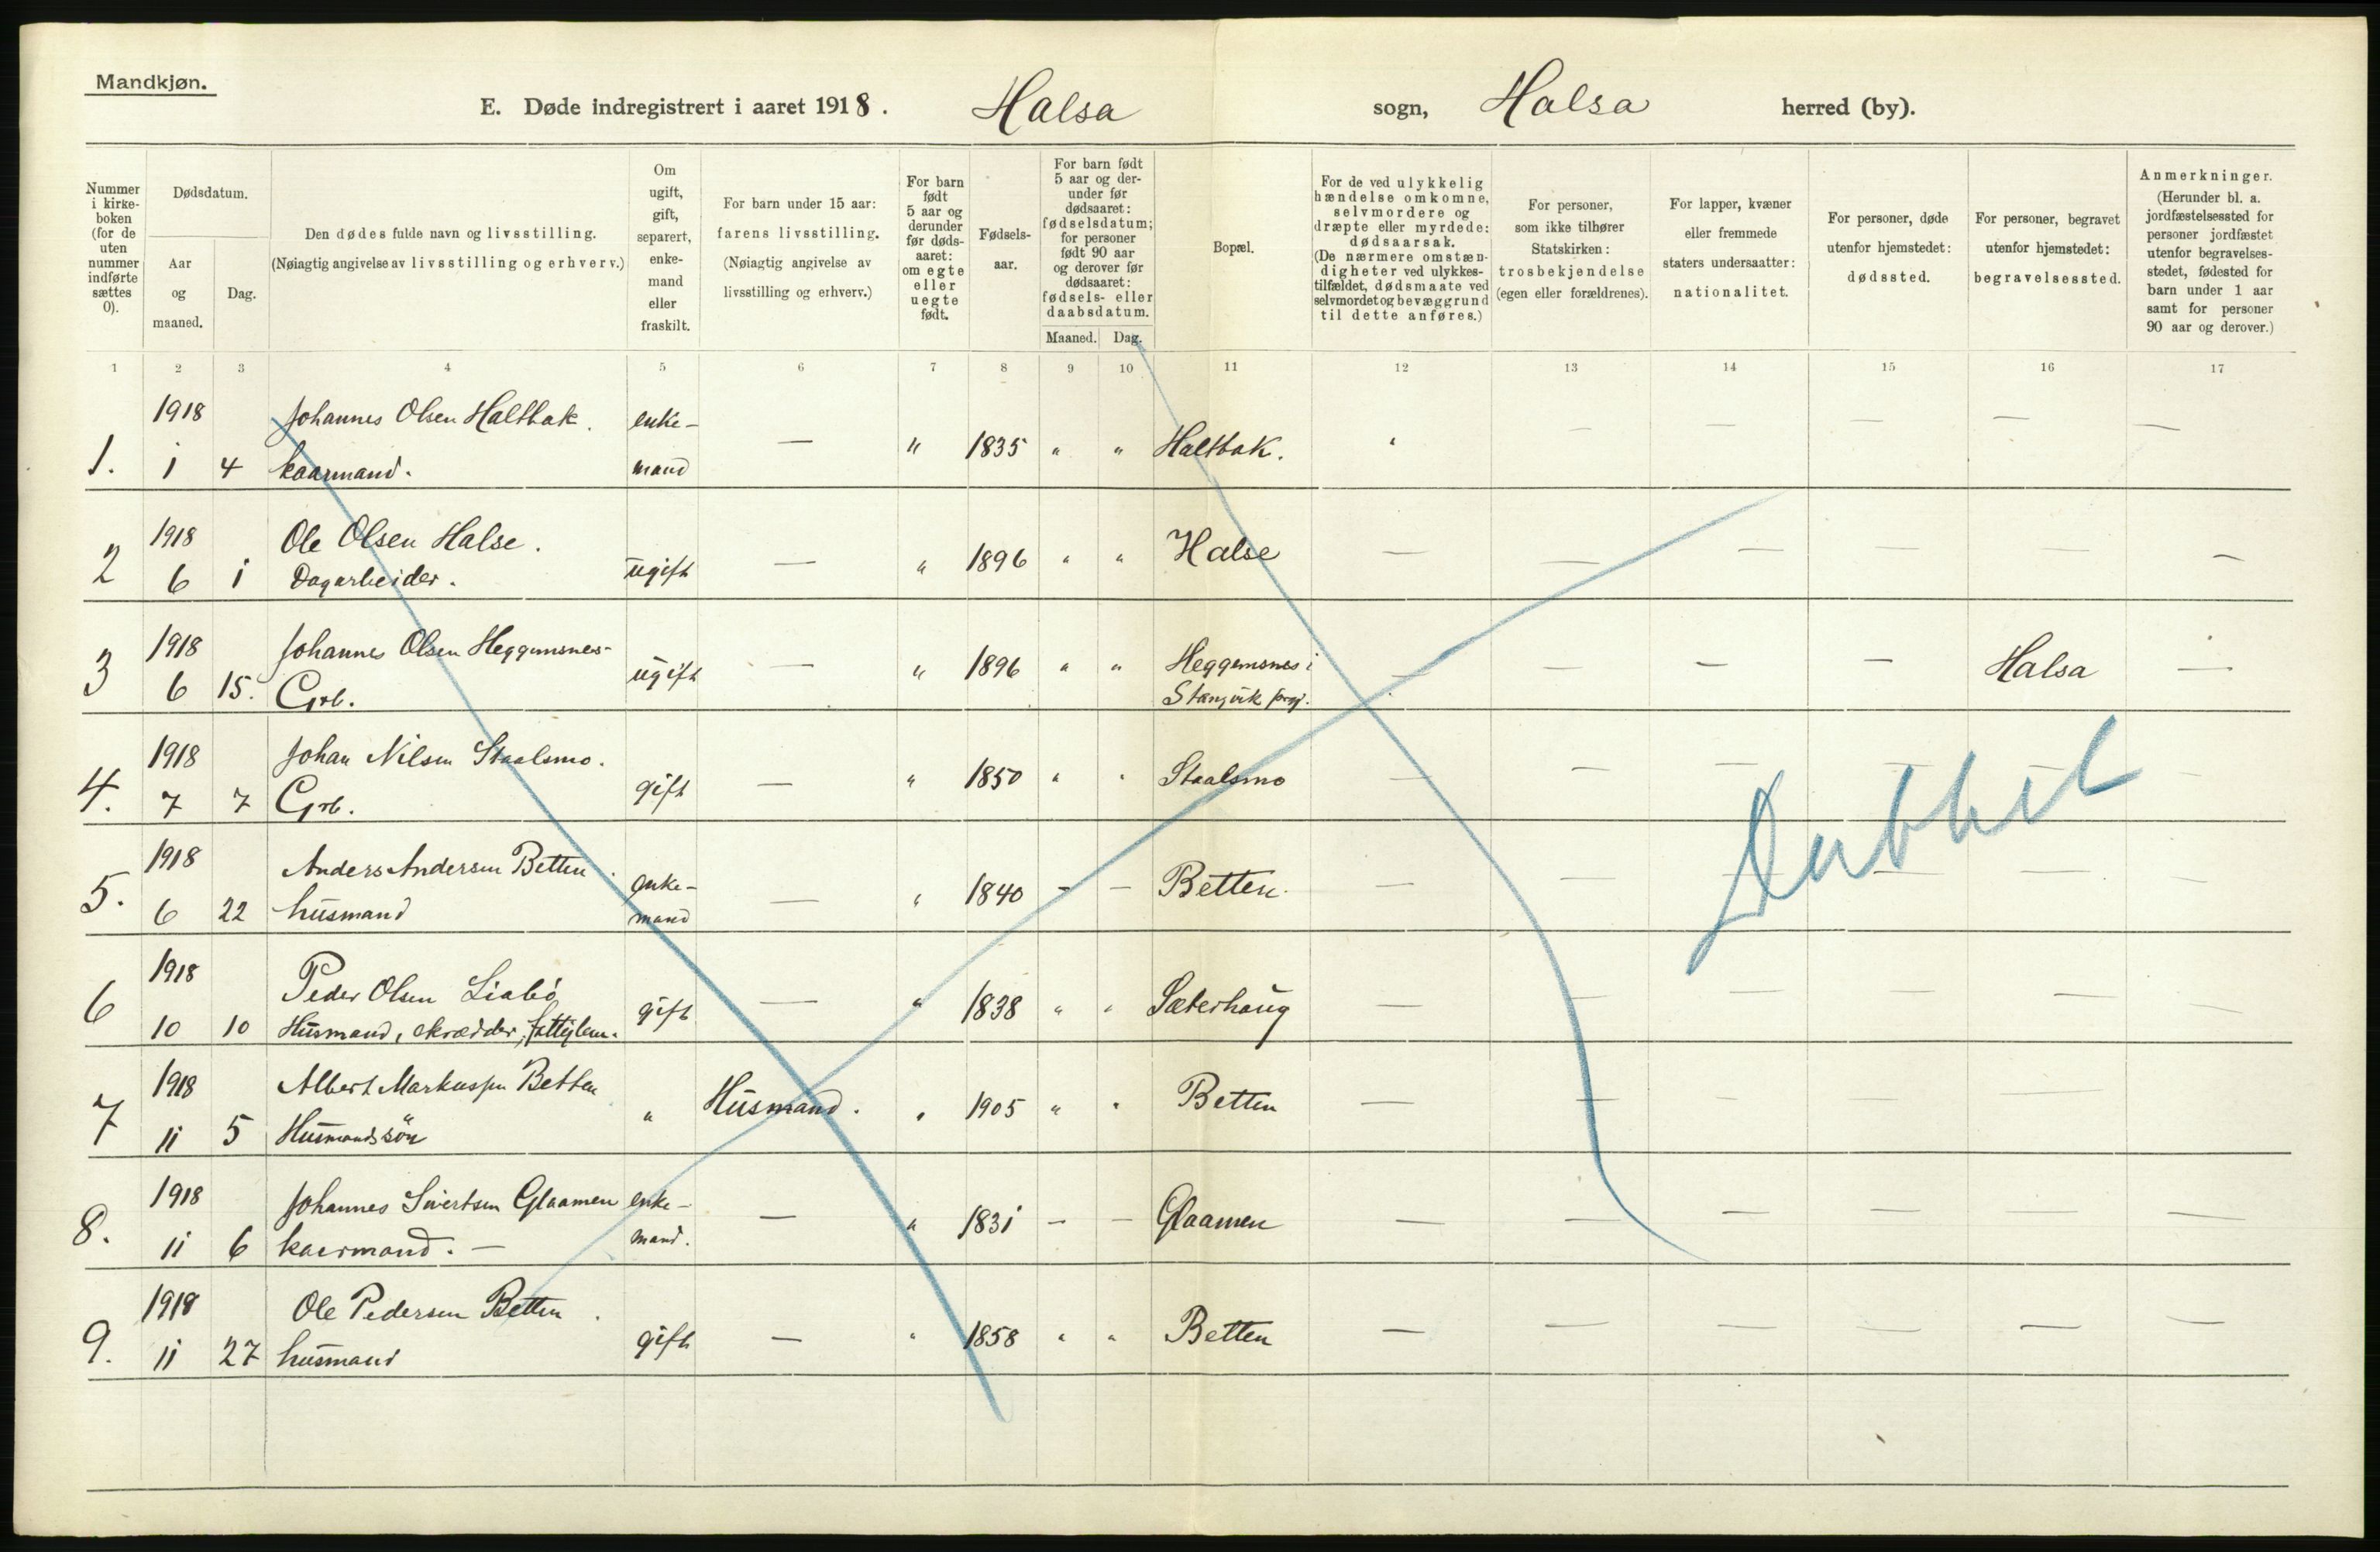 Mandkjøn.
E. Døde indregistrert i aaret 1918. Halsa sogn, Halsa herred (by).
Nummer i kirke-boken (for de uten nummer indførte sættes 0).
Dødsdatum.
Aar og maaned.
Dag.
Den dødes fulde navn og livsstilling.
(Nøiagtig angivelse av livsstilling og erhverv.)
Om ugift, gift, separert, enke-mand eller fraskilt.
For barn under 15 aar: farens livsstilling.
(Nøiagtig angivelse av livsstilling og erhverv.)
For barn født 5 aar og derunder før døds-aaret: om egte eller uegte født.
Fødsels-aar.
For barn født 5 aar og der-under før dødsaaret: fødselsdatum; for personer født 90 aar og derover før dødsaaret: fødsels- eller daabsdatum.
Maaned. Dag.
Bopæl.
For de ved ulykkelig hændelse omkomne, selvmordere og dræpte eller myrdede: dødsaarsak.
(De nærmere omstæn-digheter ved ulykkes-tilfældet, dødsmaate ved selvmordet og bevæggrund til dette anføres.)
For personer, som ikke tilhører Statskirken: trosbekjendelse (egen eller forældrenes).
For lapper, kvæner eller fremmede staters undersaatter: nationalitet.
For personer, døde utenfor hjemstedet: dødssted.
For personer, begravet utenfor hjemstedet: begravelsessted.
Anmerkninger.
(Herunder bl. a. jordfæstelsessted for personer jordfæstet utenfor begravelses-stedet, fødested for barn under 1 aar samt for personer 90 aar og derover.)
1 2 3 4 5 6 7 8 9 10 11 12 13 14 15 16 17
1918 Johannes Olsen Haltbak. enke-
1. 1 4 kaarmand. mand — " 1835 " " Haltbak. " — — — — —
1918 Ole Olsen Halse.
2 6 1 Dagarbeider. ugift — " 1896 " " Halse — — — — —
1918 Johannes Olsen Heggemsnes- Heggemsnes i
3 6 15. Grb. ugift — " 1896 " " Stangvik prgj. — — — — Halsa —
1918 Johan Nilsen Staalsmo.
4. 7 7 Grb. gift — " 1850 " " Staalsmo — — — — — —
1918 Anders Andersen Betten. enke-
5. 6 22 husmand mand — " 1840 - — Betten. — — — — — —
1918 Peder Olsen Liabö
6 10 10 Husmand, skrædder, fattiglem. gift — " 1838 " " Sæterhaug — — — — — —
1918 Albert Markussen Betten
7 11 5 Husmandssön " Husmand. " 1905 " " Betten — — — — — —
1918 Johannes Sivertsen Glaamen enke-
8. 11 6 kaarmand. — mand. — " 1831 — — Glaamen — — — — — —
1918 Ole Pedersen Betten.
9. 11 27 husmand gift — " 1858 " " Betten — — — — — —